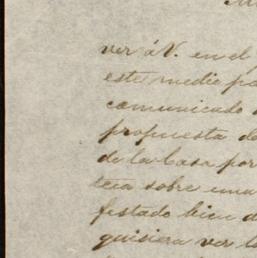 ver á V. en el
este medio pa
comunicado
propuesta de
de la Casa por
teia sobre una
festado bien d
quisiera ver l